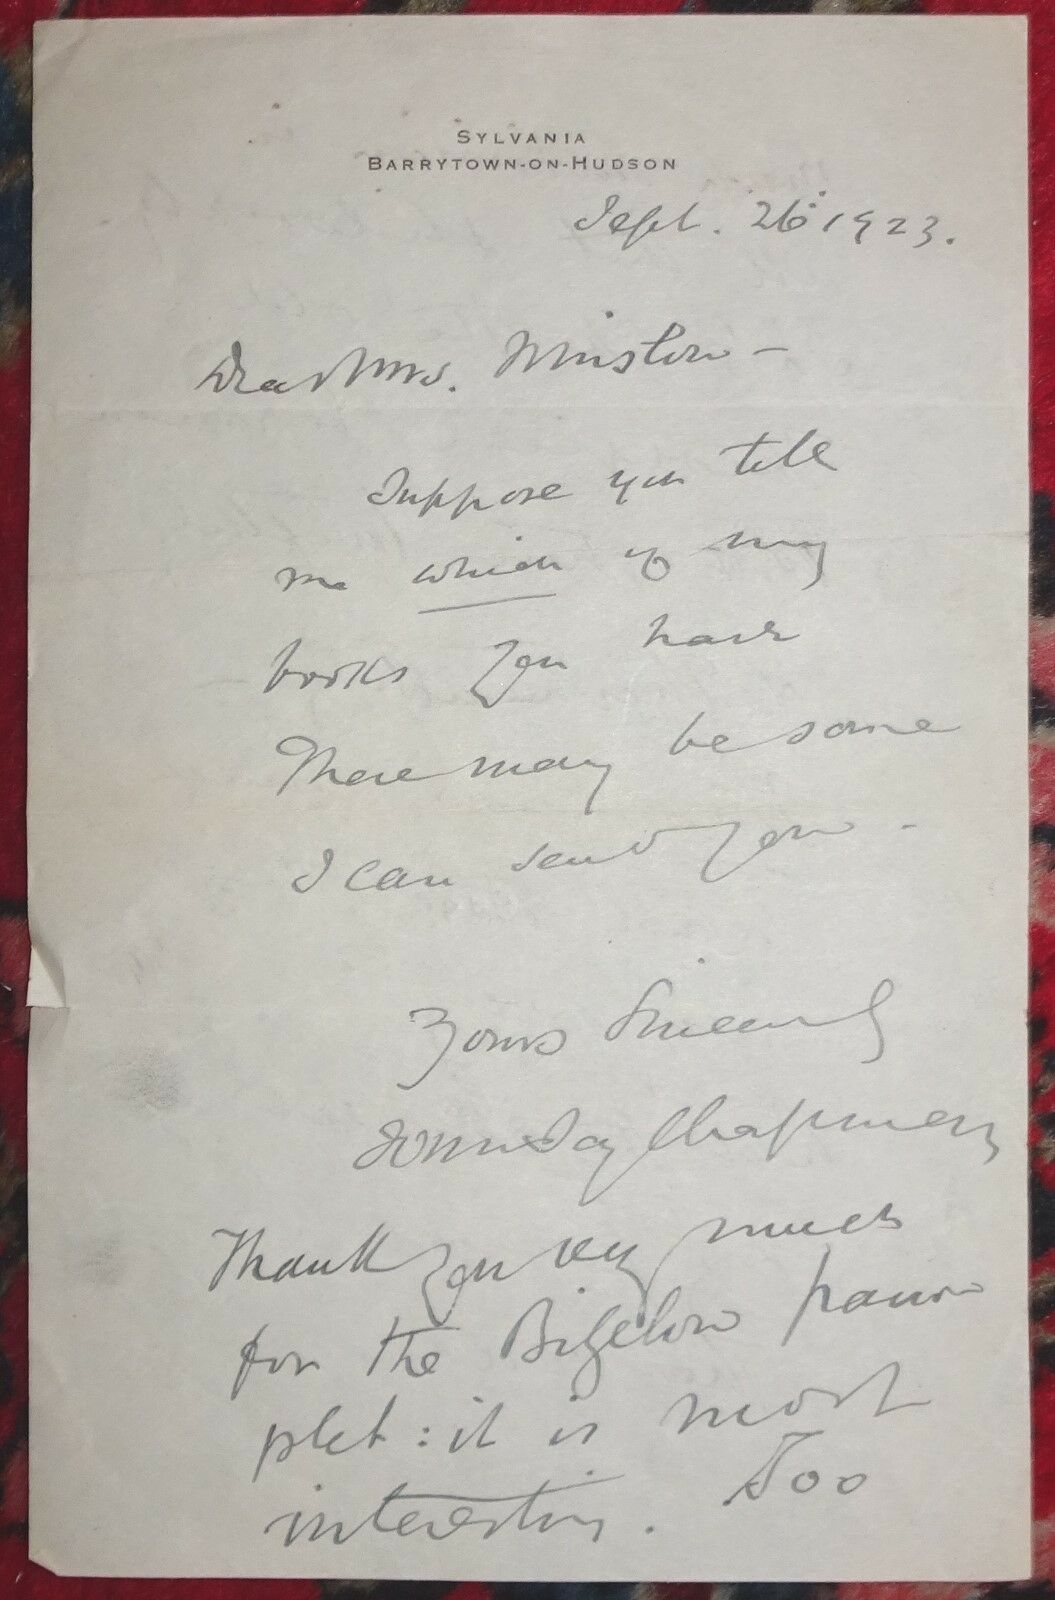 SYLVANIA
BARRYTOWN-ON-HUDSON
Sept. 26 1923.
Dear Mrs. Winslow –
Suppose you tell
me which of my
books you have
There may be some
I can send you –
Yours Sincerely
John Jay Chapman
Thank you very much
for the Bigelow pam
plet : it is most
interesting. Too